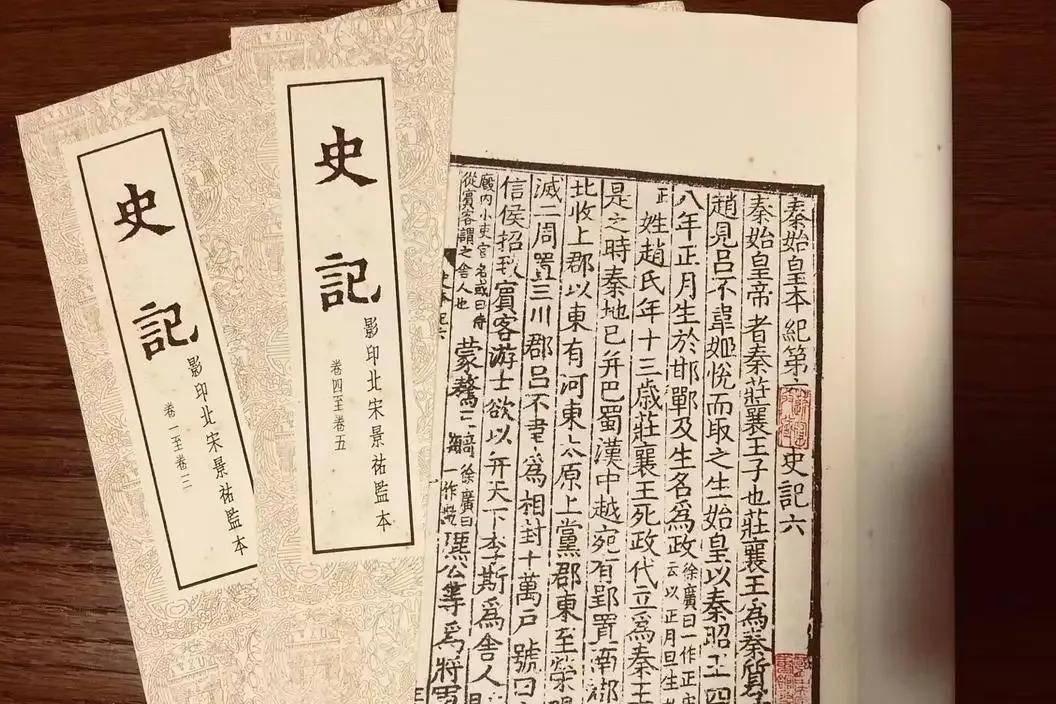 史記
影印北宋景祐監本
卷一至卷三
史記
影印北宋景祐監本
卷四至卷五
秦始皇本紀第 史記六
秦始皇帝者秦莊襄王子也莊襄王為秦質子
趙見呂不韋姬悅而取之生始皇以秦昭王四
八年正月生於邯鄲及生名為政徐廣曰一作正宋云以正月旦生
正姓趙氏年十三歲莊襄王死政代立為秦王
是之時秦地已并巴蜀漢中越宛有郢置南郡
北收上郡以東有河東太原上黨郡東至滎陽
滅二周置三川郡呂不韋為相封十萬戶號曰
信侯招致賓客游士欲以并天下李斯為舍人
廄內小吏官名或曰侍從賓客謂之舍人也蒙驁王齮徐廣曰一作齕麃公等為將軍